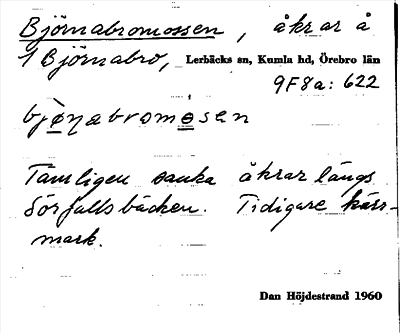 Björnabromossen, åkrar å
1 Björnabro, Lerbäcks sn, Kumla hd, Örebro län
9F8a: 622
bjò̱ṇabromo̱sen
Tämligen sanka åkrar längs
Sörfallsbäcken. Tidigare kärr-
mark.
Dan Höjdestrand 1960